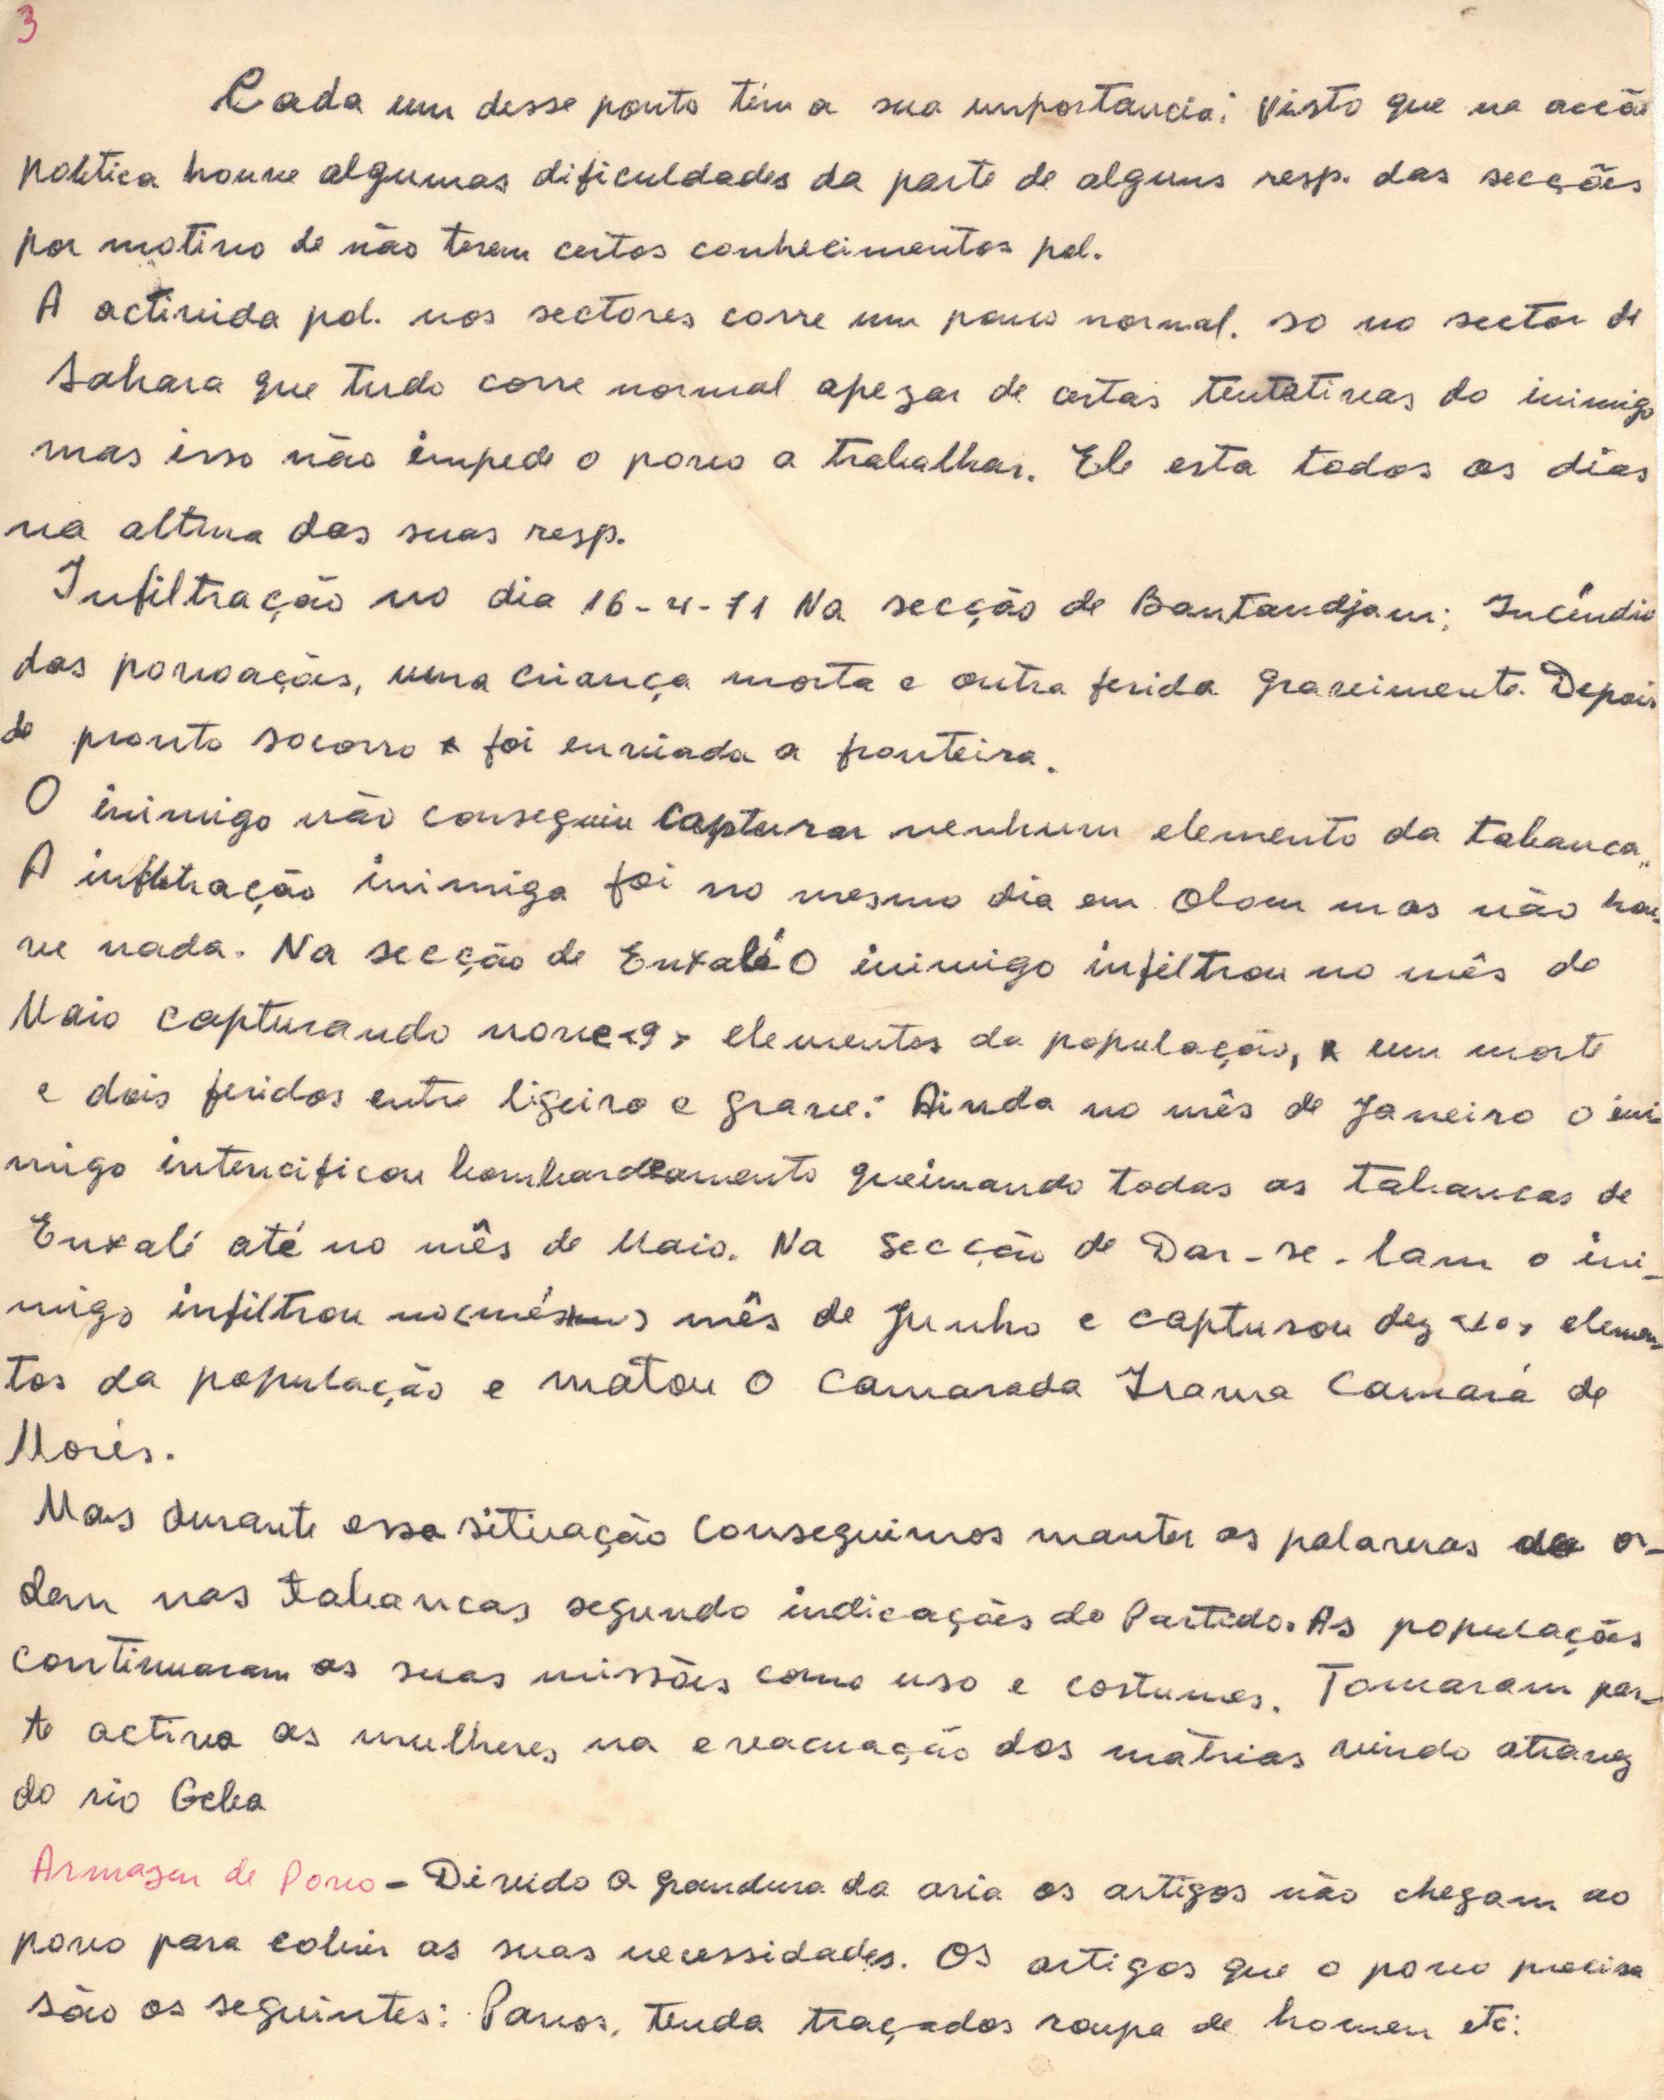 3
Cada um desse ponto tem a sua importancia; visto que na acção
politica houve algumas dificuldades da parte de alguns resp. das secções
por motivo de não terem certos conhecimentos pol.
A activida pol. nos sectores corre um pouco normal. so no sector de
Sahara que tudo corre normal apezar de certas tentativas do inimigo
mas isso não impede o povo a trabalhar. Ele esta todos os dias
na altura das suas resp.
Infiltração no dia 16-4-71 Na secção de Bantandjam; Incêndio
das povoações, uma criança morta e outra ferida graveimente. Depois
do pronto socorro foi enviada a fronteira.
O inimigo não conseguiu capturar nenhum elemento da tabanca.
A infiltração inimiga foi no mesmo dia em Olom mas não hou
ve nada. Na secção de Enxalé O inimigo infiltrou no mês de
Maio capturando nove <9> elementos da população, um morte
e dois feridos entre ligeiro e grave: Ainda no mês de Janeiro o ini
migo intencificou bombardeamento queimando todas as tabancas de
Enxalé até no mês de Maio. Na secção de Dar-se-lam o ini-
migo infiltrou no mês de Junho e capturou dez <10> elemen-
tos da população e matou o camarada Irama Camará de
Morés.
Mas durante essa sitivação conseguimos manter as palavras de or-
dem nas tabancas segundo indicações do Partido. As populações
continuaram as suas missões como uso e costumes. Tomaram par-
te activa as mulheres na evacuação dos matrias vindo atravez
do rio Geba
Armazem de Povo - Divido a grandura da aria os artigos não chegam ao
povo para cobrir as suas necessidades. Os artigos que o povo precisa
são os seguintes: Panos, tenda traçados roupa de homem etc: